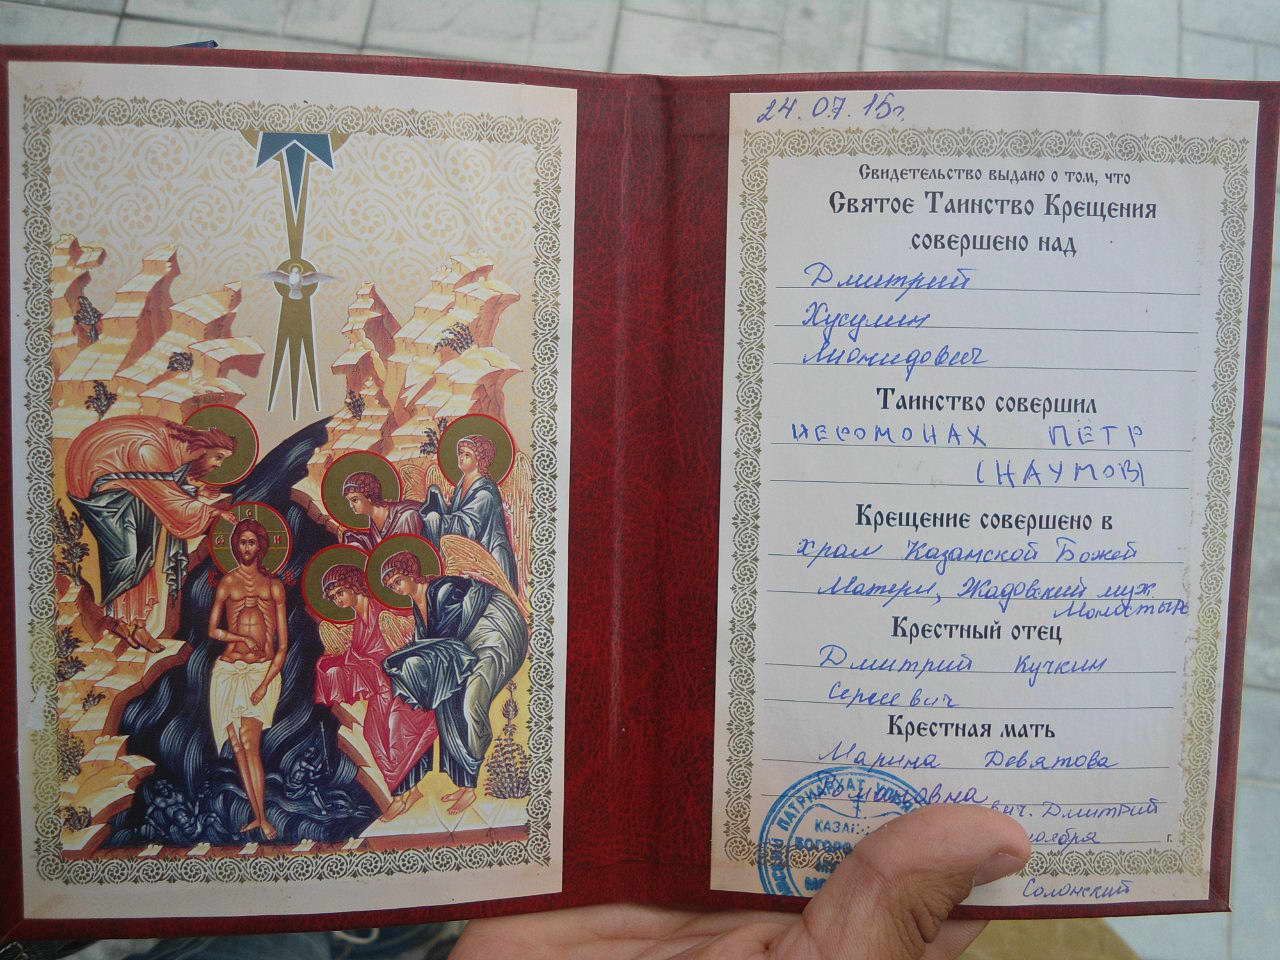 24.07.15г.
Свидетельство выдано о том, что
Святое Таинство Крещения
совершено над
Дмитрий
Хусулин
Лионидович
Таинство совершил
иеромонах Пётр
(Наумов)
Крещение совершено в
храм Казанской Божей
Матери, Жадовский муж
Монастырь
Крестный отец
Дмитрий Кучкин
Сергиевич
Крестная мать
Марина Девятова
овна
вич. Дмитрий
ноября г.
Солонский
ПАТРИАРХАТ
КАЗА
БОГОРО